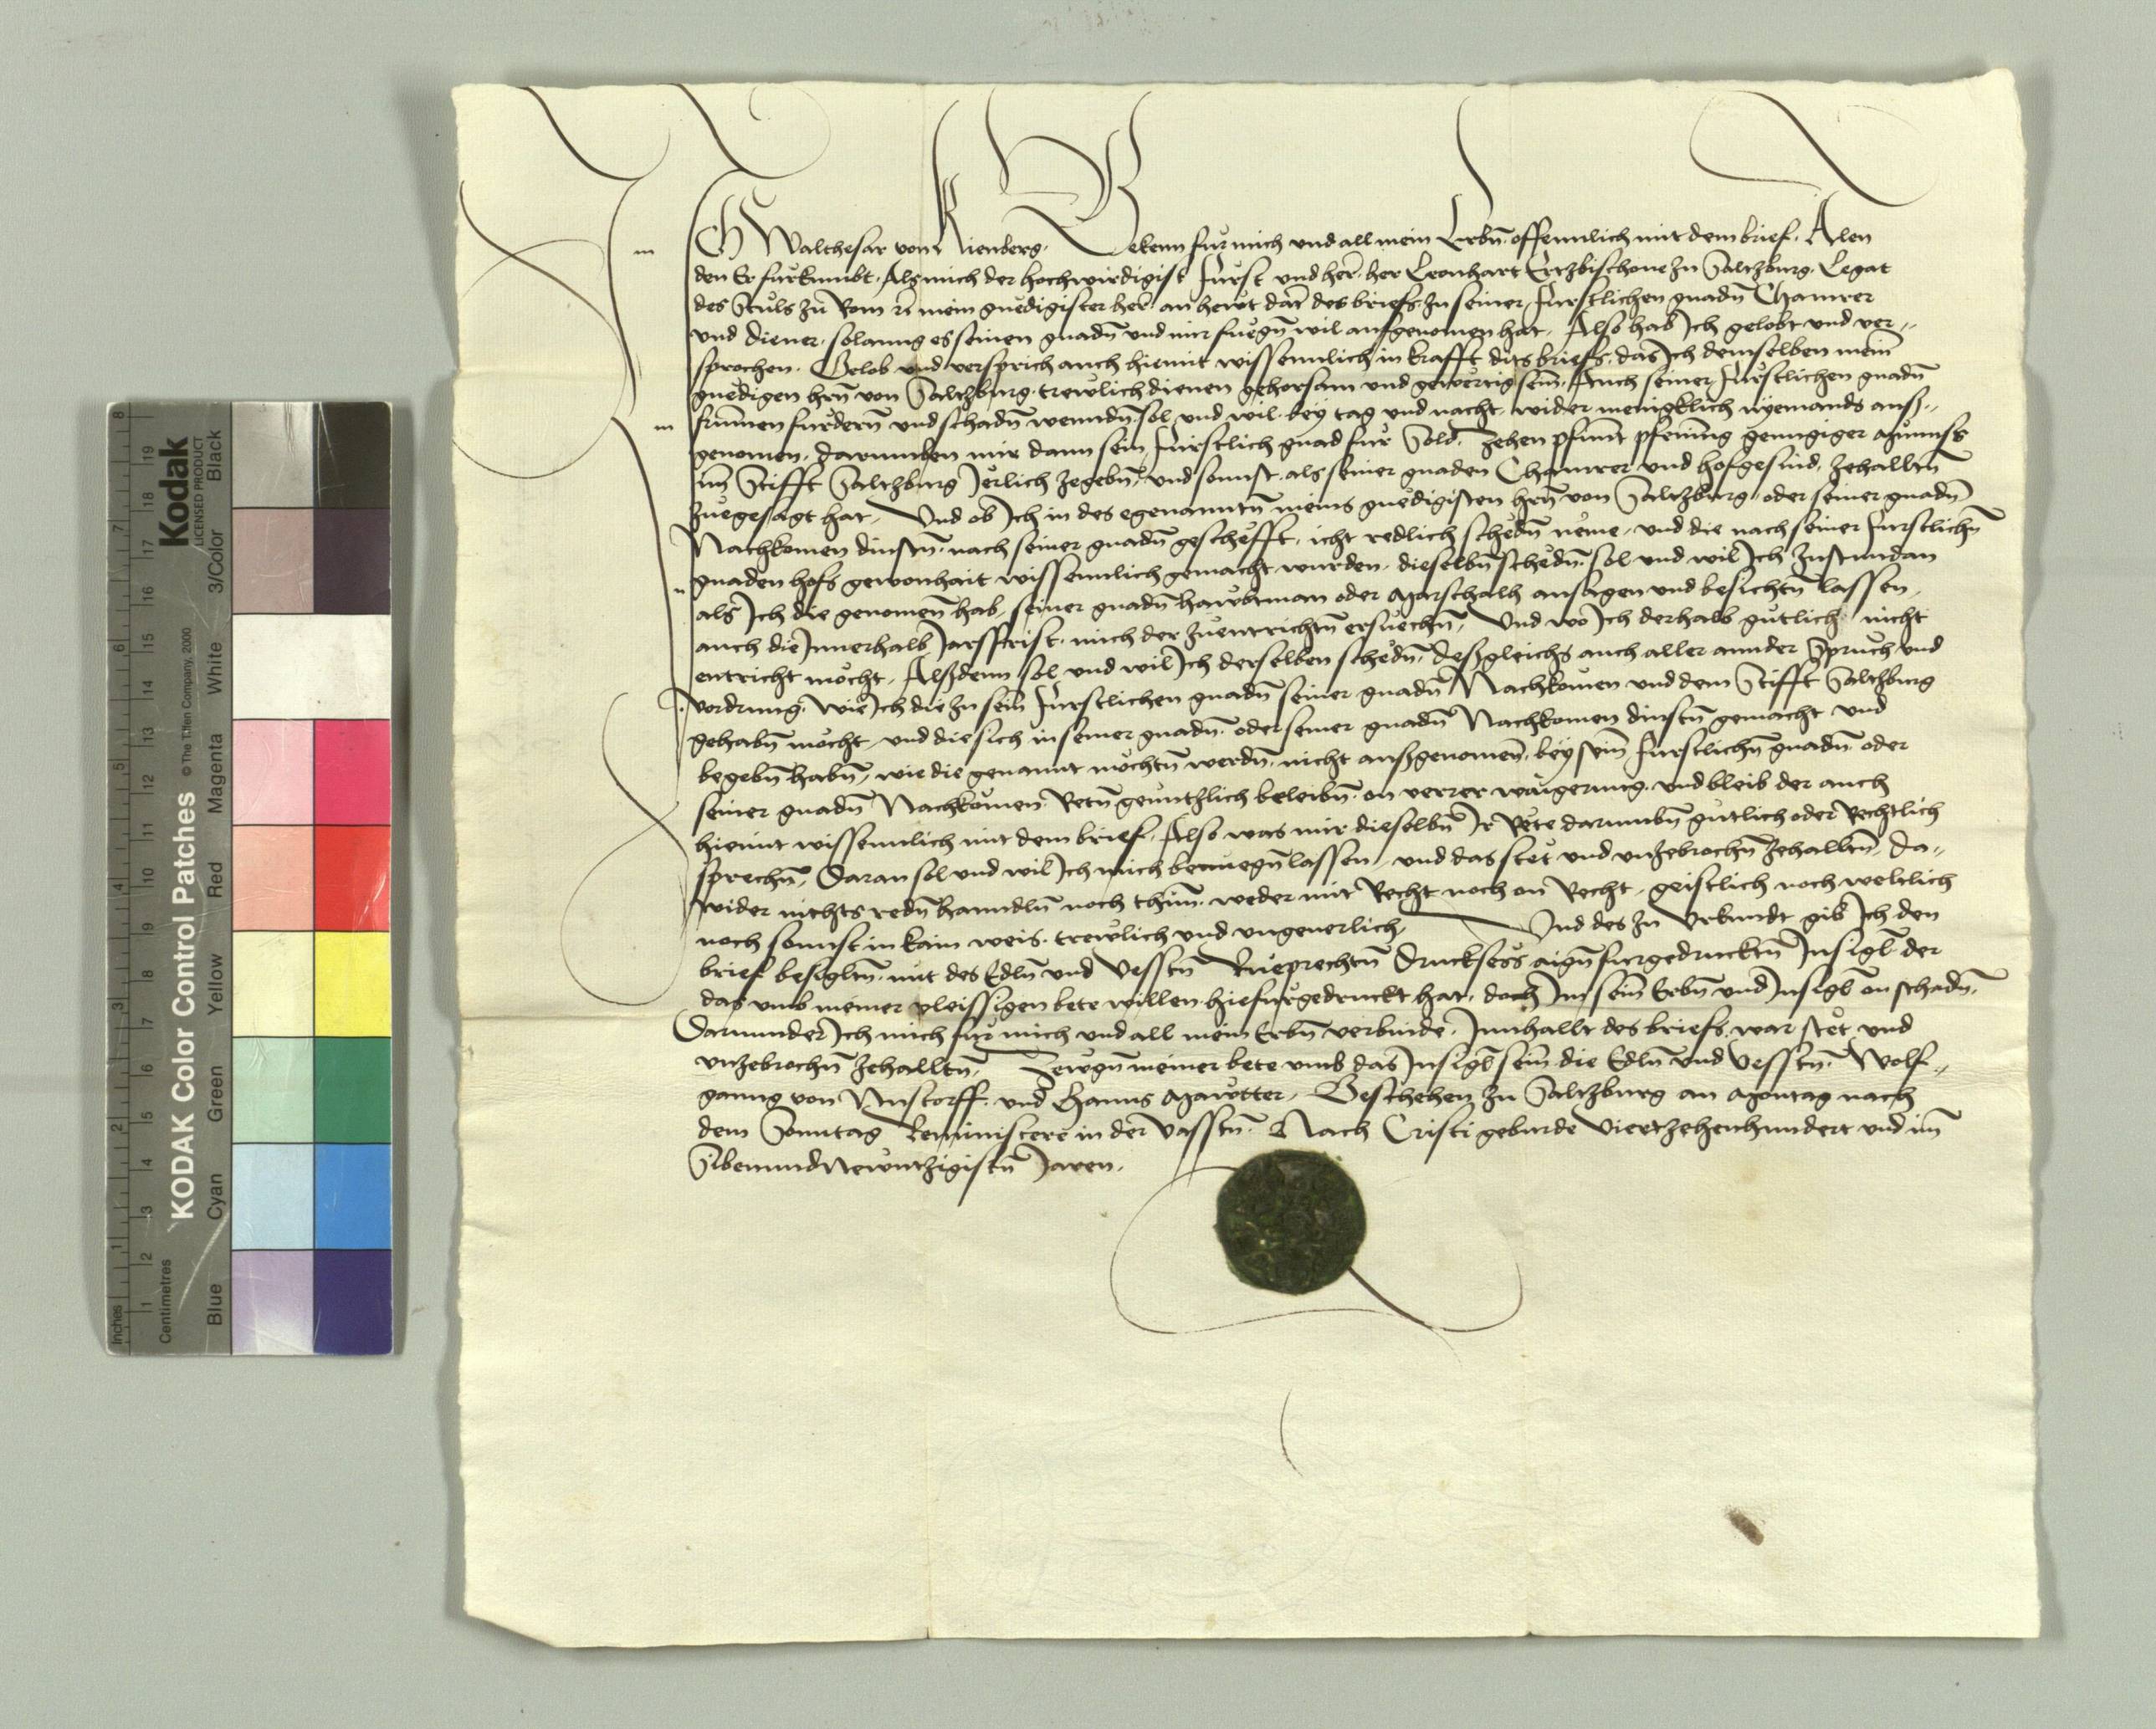 Ich Walthesar von Nienberg. Bekenn für mich und all mein Erbn̄ offennlich mit dem brief. Alen
den Er fürkumbt. Als mich der hochwirdigist Fürst und her. her Leonhart Ertzbischoue zu Saltzburg. Legat
des Stůls zu Rom zc mein gnedigister her. an hewt dat des briefs zu seiner Fürstlichen gnadn̄ Chamrer
und diener. solanng es seinen gnadn̄ und mir fuegn̄ wil aufgenomen hat. Also hab Ich gelobt und ver-
sprochen. Gelob und versprich auch hiemit wissennlich in krafft dits briefs. das Ich demselben mein̄
gnedigen hrn̄ von Saltzburg. trewlich dienen gehorsam und gewertig sein. Auch seiner Fürstlichen gnadn̄
frumen fürdern̄ und schadn̄ wenndn̄ sol und wil. bey tag und nacht. wider menigklich nyemands auß-
genomen. darumben mir dann sein Fürstlich gnad für Sold. Zehen pfunt pfening genngiger Münnss
im Stifft Saltzburg Jerlich zegebn̄. und sonnst. als seiner gnaden Chamrer und hofgesind. zehalltn̄
zuegesagt hat. Und ob Ich in des egenanntn̄ meins gnedigisten hrn̄ von Saltzburg. oder seiner gnadn̄
Nachkomen dinstn̄. nach seiner gnadn̄ geschefft. icht redlich schedn̄ neme. und die nach seiner Fürstlichn̄
gnaden hofs gewonhait wissennlich gemacht wurden. dieselbn̄ schedn̄. sol und wil Ich zustundan
als Ich die genomen̄ hab. seiner gnadn̄ hawbtman oder Marschalh ansagen und besichtn̄ lassen.
auch die Innerhalb Jarssfrist. mich der zuentrichtn̄ ersuechn̄. Und wo Ich derhalb gütlich nicht
entricht möcht. Alßdenn sol und wil Ich derselben schedn̄. deßgleichs auch aller annder Spruch und
vordrung. wie Ich die zu sein̄ Fürstlichen gnadn̄ seiner gnadn̄ Nachkomen und dem Stifft Saltzburg
gehabn̄ möcht. und die sich in seiner gnadn̄. oder seiner gnadn̄ Nachkomen dinstn̄ gemacht und
begebn̄ habn̄. wie die genannt möchtn̄ werdn̄. nicht außgenomen̄. bey sein̄ Fürstlichn̄ gnadn̄. oder
seiner gnadn̄ Nachkomen. Retn̄ genntzlich beleibn̄. on verrer waigerung. und bleib der auch
hiemit wissennlich mit dem brief. Also was mir dieselbn̄ Ir Rete darumbn̄ gütlich oder Rechtlich
sprechn̄. Daran sol und wil Ich mich benuegn̄ lassen. und das stet und unzebrochn̄ zehalltn̄. da-
wider nichts redn̄ hanndln̄ noch thun̄. weder mit Recht noch on Recht. geistlich noch weltlich
noch sonnst in kain weis. trewlich und ungeuerlich. Und des zu Urkundt gib Ich den
brief besigltn̄. mit des Edln̄ und Vesstn̄ Rueprechtn̄ Drucksess aign̄ fürgedrucktn̄ Insigl. der
das umb meiner vleissigen bete willen. hiefürgedruckt hat. doch Im sein̄ Erbn̄ und Insigl on schadn̄.
Darunnder Ich mich für mich und all mein Erbn̄ verbinde. Innhallt des briefs. war stet und
unzebrochn̄ zehalltn̄. Zewgn̄ meiner bete umb das Insigl sein̄ die Edln̄ und Vesstn̄. Wolf-
ganng von Nustorff. und Hanns Mawtter. Geschehen zu Saltzburg an Montag nach
dem Sonntag Reminiscere in der Vasstn̄. Nach Cristi geburde Viertzehenhundert und im
Sibenundnewntzigistn̄ Jaren.
Kodak
LICENSED PRODUCT
KODAK Color Control Patches
© The Tiffen Company, 2000
Blue
Cyan
Green
Yellow
Red
Magenta
White
3/Color
Black
Inches
1 2 3 4 5 6 7 8
Centimetres
1 2 3 4 5 6 7 8 9 10 11 12 13 14 15 16 17 18 19